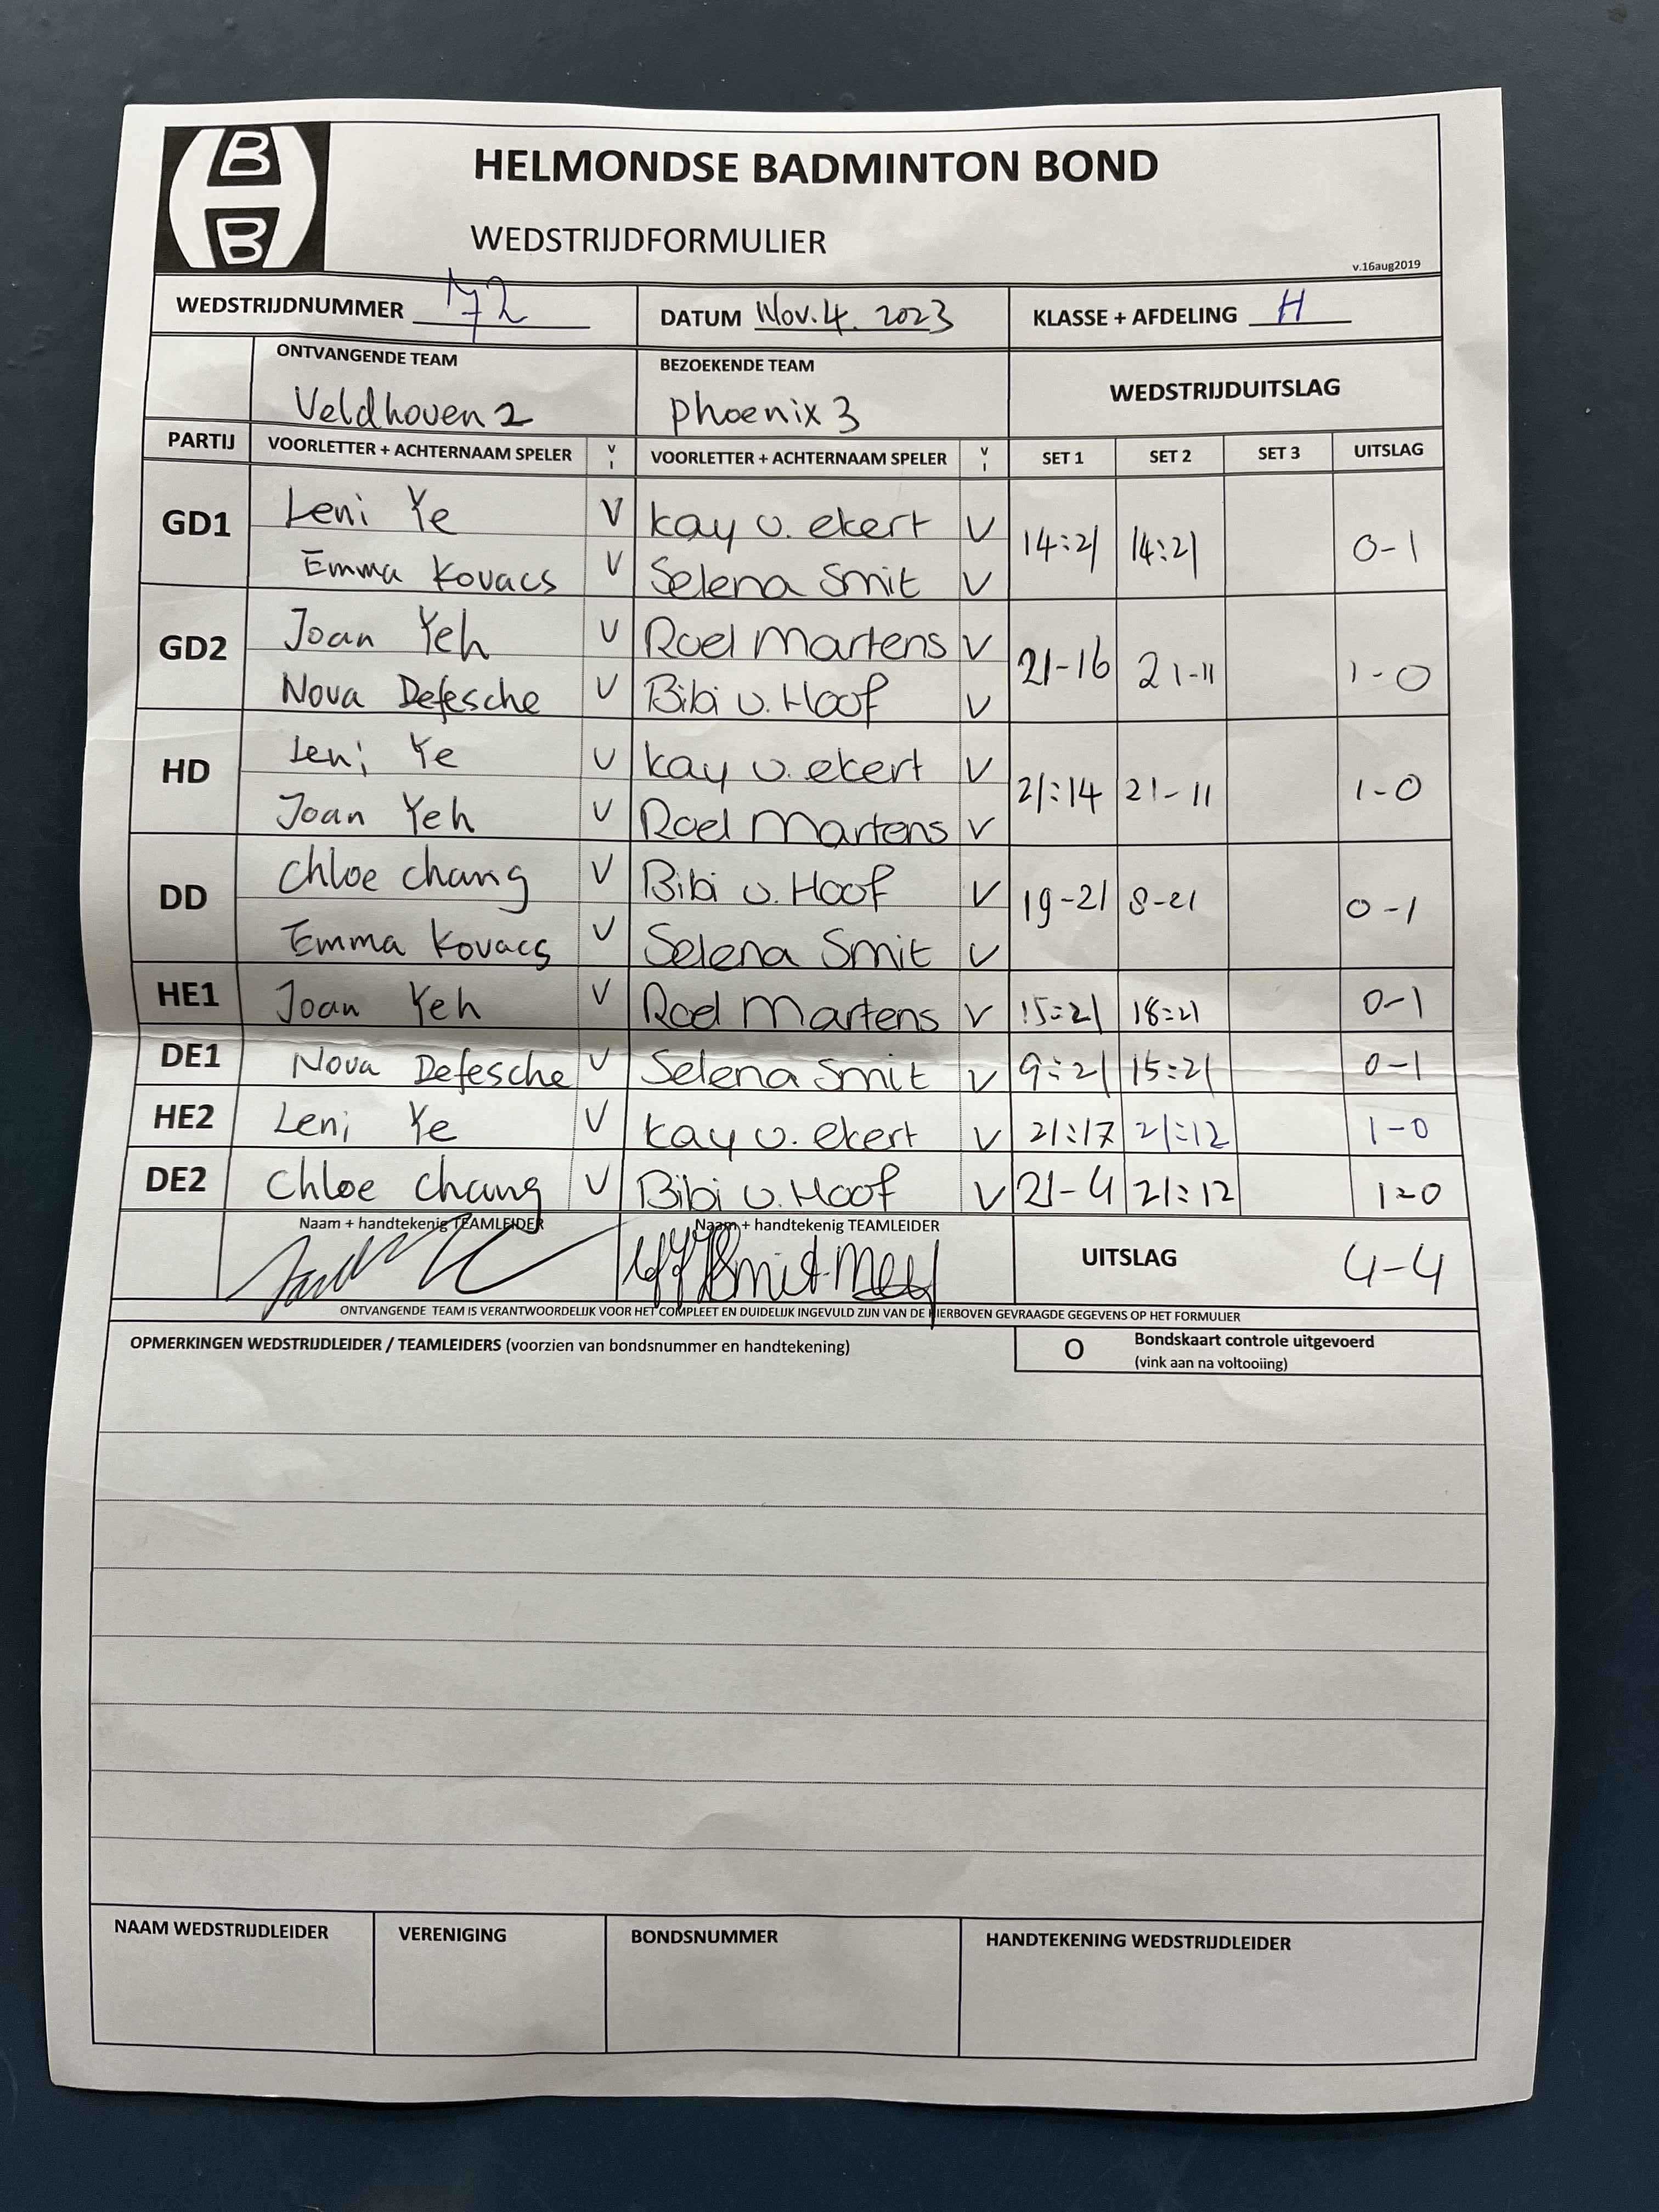 B
B
HELMONDSE BADMINTON BOND
WEDSTRIJDFORMULIER
v.16aug2019
WEDSTRIJDNUMMER 172 DATUM Nov. 4. 2023 KLASSE + AFDELING H
ONTVANGENDE TEAM BEZOEKENDE TEAM WEDSTRIJDUITSLAG
Veldhoven 2 phoenix 3
PARTIJ VOORLETTER + ACHTERNAAM SPELER V I VOORLETTER + ACHTERNAAM SPELER V I SET 1 SET 2 SET 3 UITSLAG
GD1 Leni Ye V kay v. ekert V 14:21 14:21 0-1
Emma Kovacs V Selena Smit V
GD2 Joan Yeh V Roel Martens V 21-16 21-11 1-0
Nova Defesche V Bibi v. Hoof V
HD Leni Ye V kay v. ekert V 21:14 21-11 1-0
Joan Yeh V Roel Martens V
DD Chloe chang V Bibi v. Hoof V 19-21 8-21 0-1
Emma Kovacs V Selena Smit V
HE1 Joan Yeh V Roel Martens V 15:21 18:21 0-1
DE1 Nova Defesche V Selena Smit V 9:21 15:21 0-1
HE2 Leni Ye V kay v. ekert V 21:17 21:12 1-0
DE2 Chloe chang V Bibi v. Hoof V 21-4 21:12 1-0
Naam + handtekenig TEAMLEIDER Naam + handtekenig TEAMLEIDER UITSLAG 4-4
ONTVANGENDE TEAM IS VERANTWOORDELIJK VOOR HET COMPLEET EN DUIDELIJK INGEVULD ZIJN VAN DE HIERBOVEN GEVRAAGDE GEGEVENS OP HET FORMULIER
OPMERKINGEN WEDSTRIJDLEIDER / TEAMLEIDERS (voorzien van bondsnummer en handtekening) O Bondskaart controle uitgevoerd
(vink aan na voltooiing)
NAAM WEDSTRIJDLEIDER VERENIGING BONDSNUMMER HANDTEKENING WEDSTRIJDLEIDER